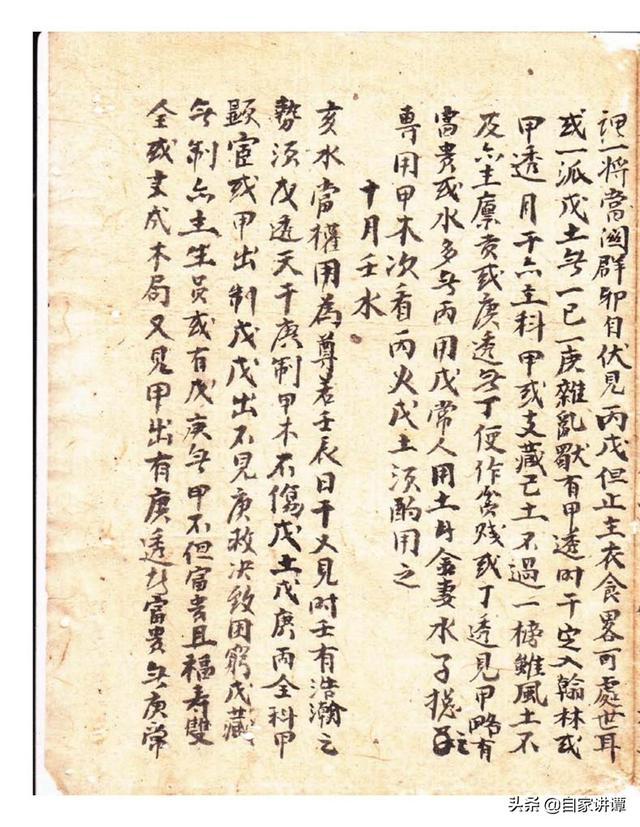 謂一將當關群卯自伏見丙戊但止主衣食畧可處世耳
或一派戊土無一己一庚雜亂獸有甲透时干定入翰林或
甲透月干亦主科甲或支藏己土不過一榜雖風土不
及亦主廪貢或庚透無丁便作貧贱或丁透見甲略有
富貴或水多無丙用戊常人用土片金妻水子
專用甲木次看丙火戊土須酌用之
十月壬水
亥水當權用為尊若壬辰日干又見时壬有浩瀚之
勢須戊透天干庚制甲木不傷戊土戊庚丙全科甲
顕宦或甲出制戊戊出不見庚救决致困窮戊藏
無制亦主生員或有戊庚無甲不但富貴且福寿雙
全或支成木局又見甲出有庚透者富貴無庚常
头条 @自家讲谭